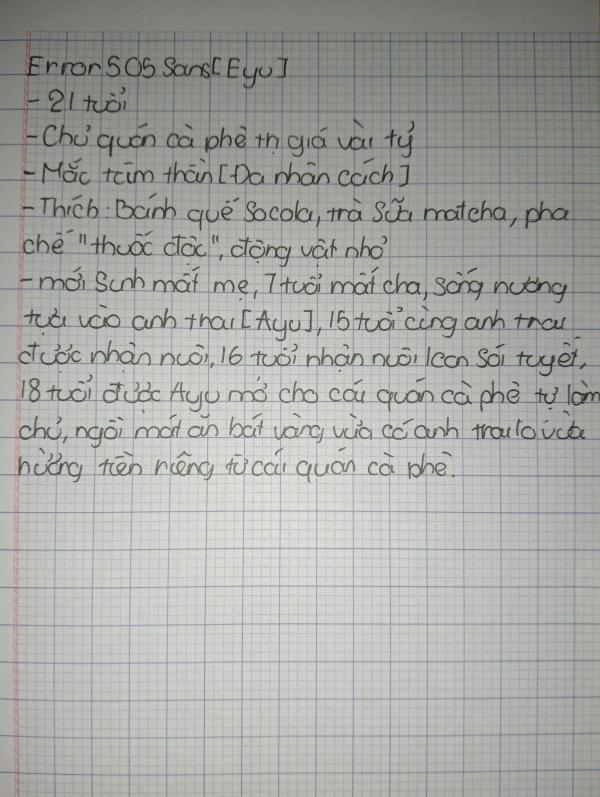 Error SOS Sans[Eyu]
- 21 tuổi
- Chủ quán cà phê trị giá vài tỷ
- Mắc tâm thần [Đa nhân cách]
- Thích: Bánh quế Socola, trà sữa matcha, pha
chế "thuốc độc", động vật nhỏ
- mới sinh mất mẹ, 7 tuổi mất cha, sống nương
tựa vào anh trai [Ayu], 15 tuổi cùng anh trai
được nhận nuôi, 16 tuổi nhận nuôi 1 con sói tuyết,
18 tuổi được Ayu mở cho cái quán cà phê tự làm
chủ, ngồi mát ăn bát vàng vừa có anh trai lo vừa
hưởng tiền riêng từ cái quán cà phê.